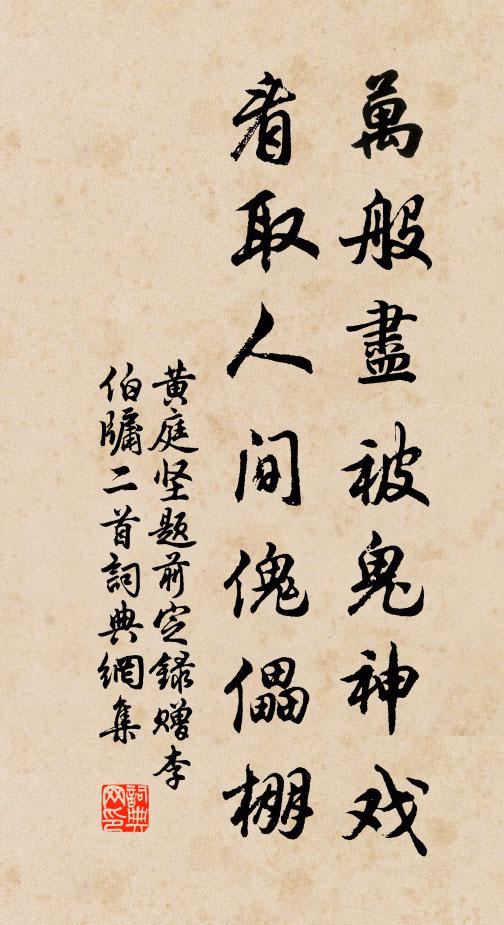 萬般盡被鬼神戏
看取人间傀儡棚
黄庭坚题前定録赠李
伯牖二首詞典網集
詞典
网印